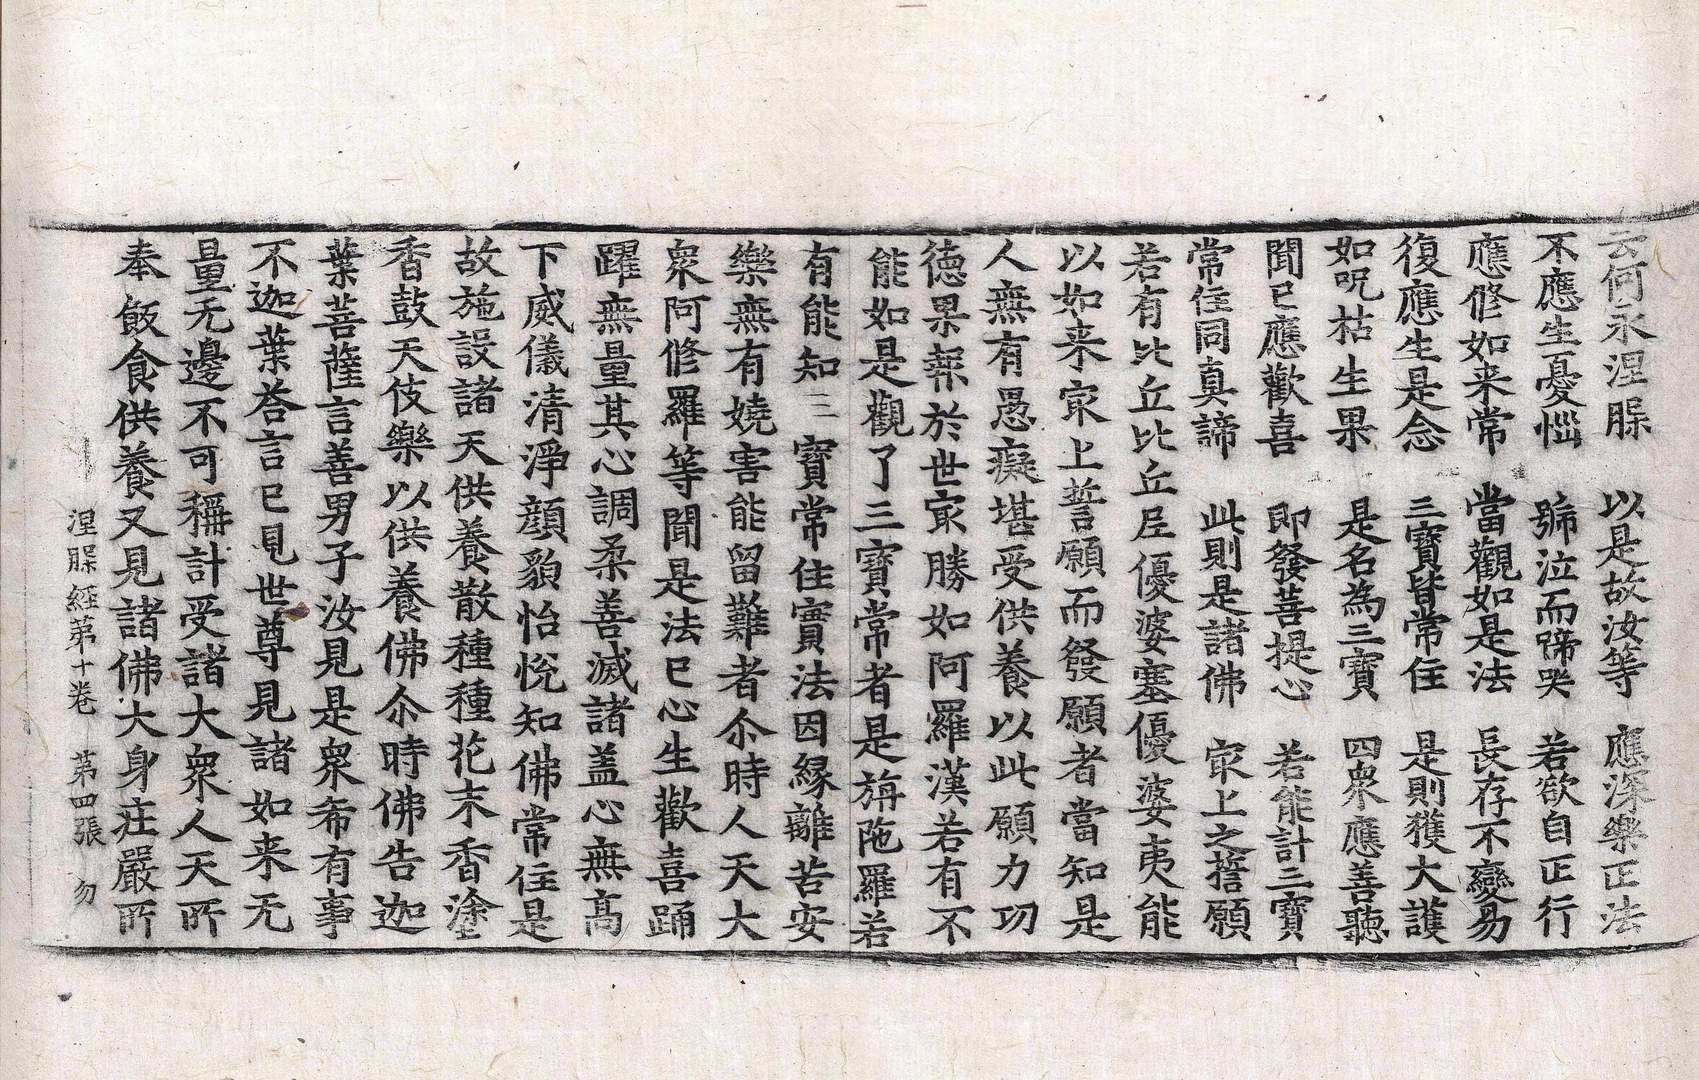 云何永涅槃　以是故汝等　應深樂正法
不應生憂惱　號泣而啼哭　若欲自正行
應修如来常　當觀如是法　長存不變易
復應生是念　三寶皆常住　是則獲大護
如呪枯生果　是名為三寶　四衆應善聽
聞已應歡喜　即發菩提心　若能計三寶
常住同真諦　此則是諸佛　㝡上之誓願
若有比丘比丘尼優婆塞優婆夷能
以如来㝡上誓願而發願者當知是
人無有愚癡堪受供養以此願力功
德果報於世㝡勝如阿羅漢若有不
能如是觀了三寶常者是旃陁羅若
有能知三寶常住實法因緣離苦安
樂無有嬈害能留難者尒時人天大
衆阿修羅等聞是法已心生歡喜踊
躍無量其心調柔善滅諸盖心無高
下威儀清淨顔貌怡恱知佛常住是
故施設諸天供養散種種花末香塗
香鼓天伎樂以供養佛尒時佛告迦
葉菩薩言善男子汝見是衆希有事
不迦葉荅言已見世尊見諸如来无
量无邊不可稱計受諸大衆人天所
奉飯食供養又見諸佛大身莊嚴所
涅槃經苐十卷　苐四張　勿